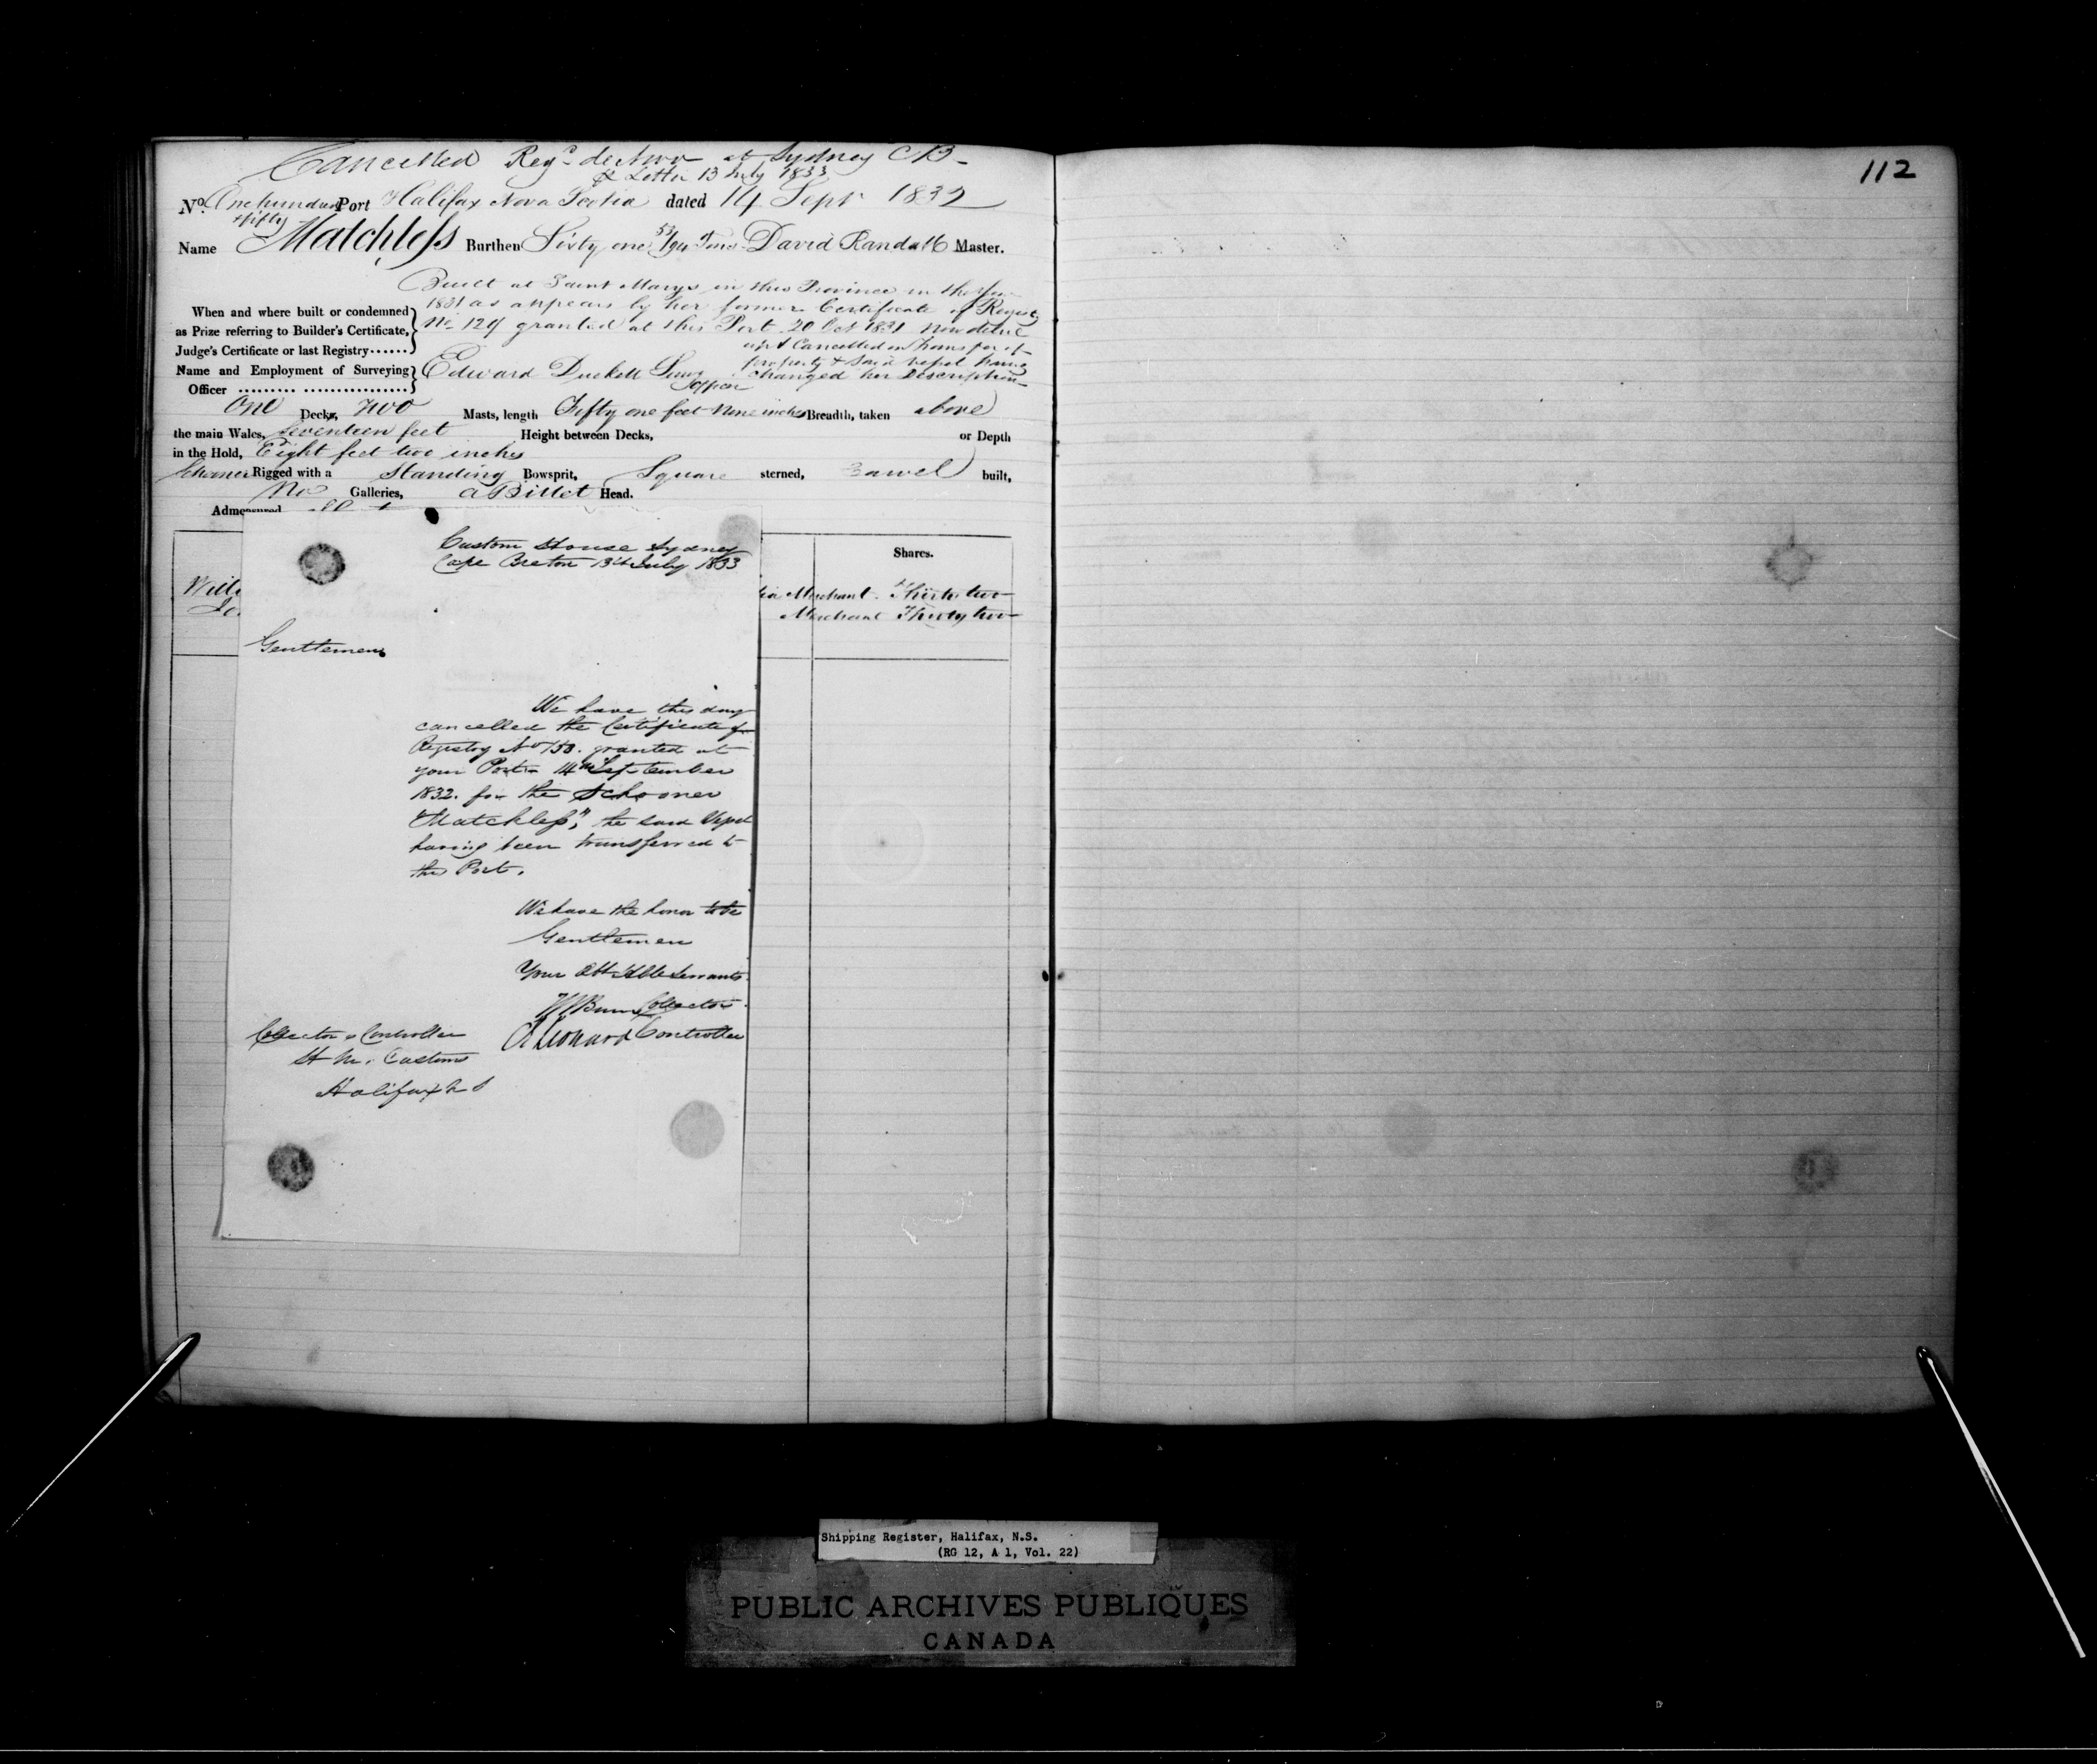 Cancelled Regd. de Novo at Sydney CB-
Pr Letter 13 July 1833
No. One hundred & fifty Port Halifax Nova Scotia dated 14 Sept 1832
Name Matchless Burthen Sixty one 53/94 Tons David Randall Master.
Built at Saint Marys in this Province in the Year
When and where built or condemned 1831 as appears by her former Certificate of Registry
as Prize referring to Builder's Certificate, No 129 granted at this Port 20 Oct 1831 now deliv
Judge's Certificate or last Registry...... up & Cancelled on Transfer of
property & said vessel having
Name and Employment of Surveying Edward Duckett changed her Description
Officer
One Decks, Two Masts, length Fifty one feet Nine inches Breadth, taken above
the main Wales, Seventeen feet Height between Decks, or Depth
in the Hold, Eight feet two inches
Schooner Rigged with a Standing Bowsprit, Square sterned, Carvel built,
No Galleries, a Billet Head.
Admeasured
Shares.
Merchant Thirty two
Merchant Thirty two
Custom House Sydney
Cape Breton 13th July 1833
Gentlemen
We have this day
cancelled the Certificate of
Registry No 150. granted at
your Port 14th September
1832. for the Schooner
"Matchless", the said Vessel
having been transferred to
this Port.
We have the honor to be
Gentlemen
Your Obt Hble Servants
Collector
Leonard Controller
Collector & Controller
H M. Customs
Halifax N S
112
Shipping Register, Halifax, N.S.
(RG 12, A 1, Vol. 22)
PUBLIC ARCHIVES PUBLIQUES
CANADA